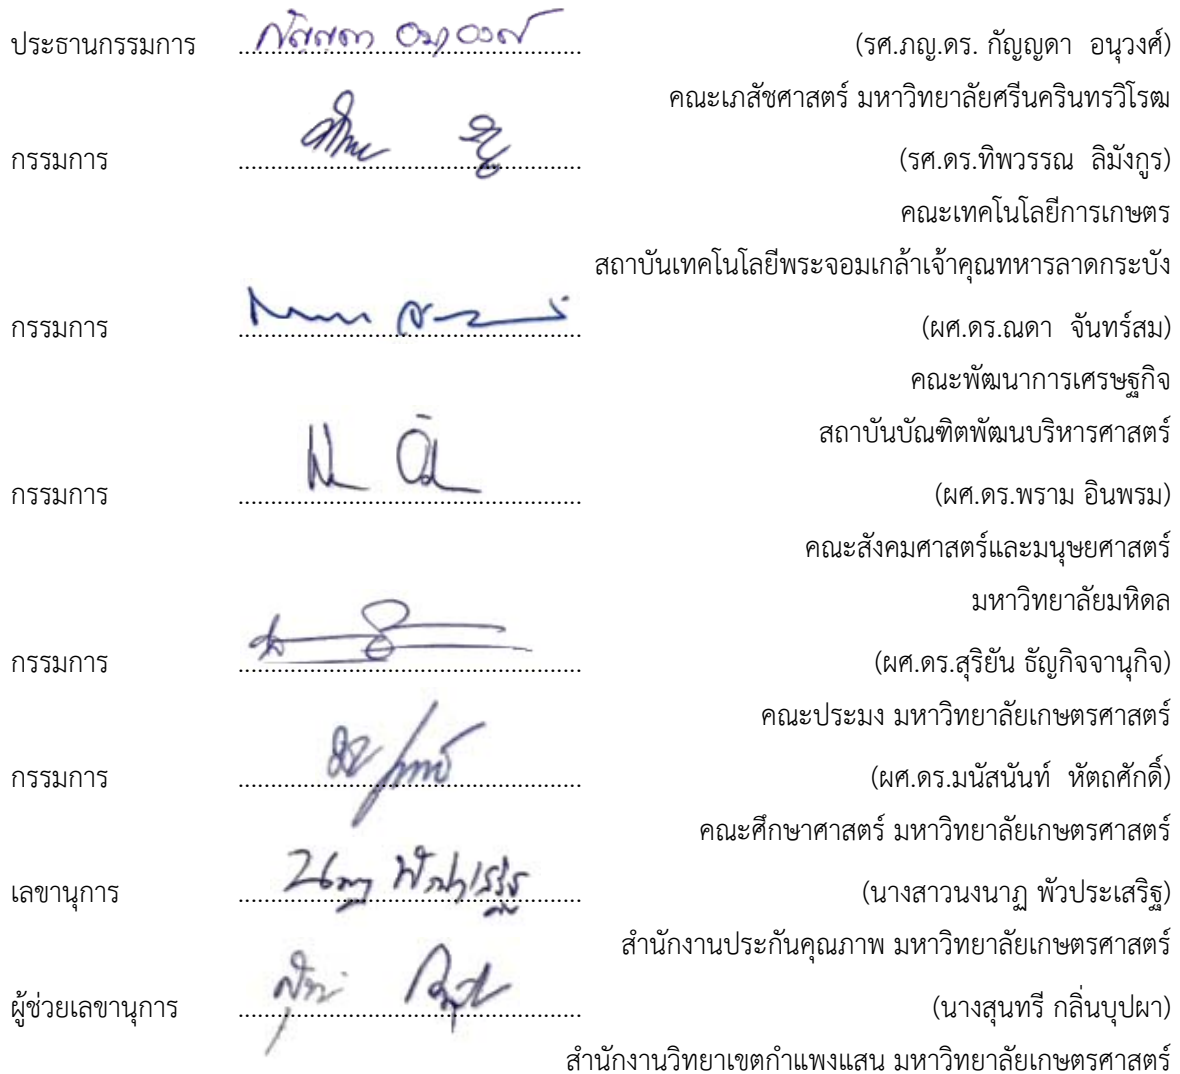 ประธานกรรมการ กัญญดา อนุวงศ์ (รศ.ภญ.ดร. กัญญดา อนุวงศ์)
คณะเภสัชศาสตร์ มหาวิทยาลัยศรีนครินทรวิโรฒ
กรรมการ (รศ.ดร.ทิพวรรณ ลิมังกูร)
คณะเทคโนโลยีการเกษตร
สถาบันเทคโนโลยีพระจอมเกล้าเจ้าคุณทหารลาดกระบัง
กรรมการ (ผศ.ดร.ณดา จันทร์สม)
คณะพัฒนาการเศรษฐกิจ
สถาบันบัณฑิตพัฒนบริหารศาสตร์
กรรมการ (ผศ.ดร.พราม อินพรม)
คณะสังคมศาสตร์และมนุษยศาสตร์
มหาวิทยาลัยมหิดล
กรรมการ (ผศ.ดร.สุริยัน ธัญกิจจานุกิจ)
คณะประมง มหาวิทยาลัยเกษตรศาสตร์
กรรมการ (ผศ.ดร.มนัสนันท์ หัตถศักดิ์)
คณะศึกษาศาสตร์ มหาวิทยาลัยเกษตรศาสตร์
เลขานุการ (นางสาวนงนาฏ พัวประเสริฐ)
สำนักงานประกันคุณภาพ มหาวิทยาลัยเกษตรศาสตร์
ผู้ช่วยเลขานุการ (นางสุนทรี กลิ่นบุปผา)
สำนักงานวิทยาเขตกำแพงแสน มหาวิทยาลัยเกษตรศาสตร์